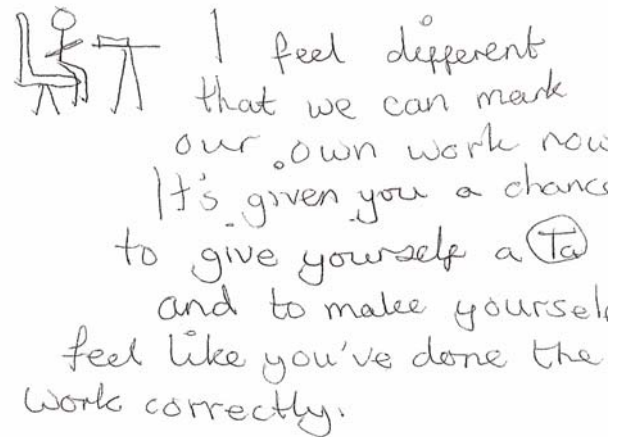 I feel different
that we can mark
our own work now
It's given you a chance
to give yourself a Ta
and to make yourself
feel like you've done the
work correctly.